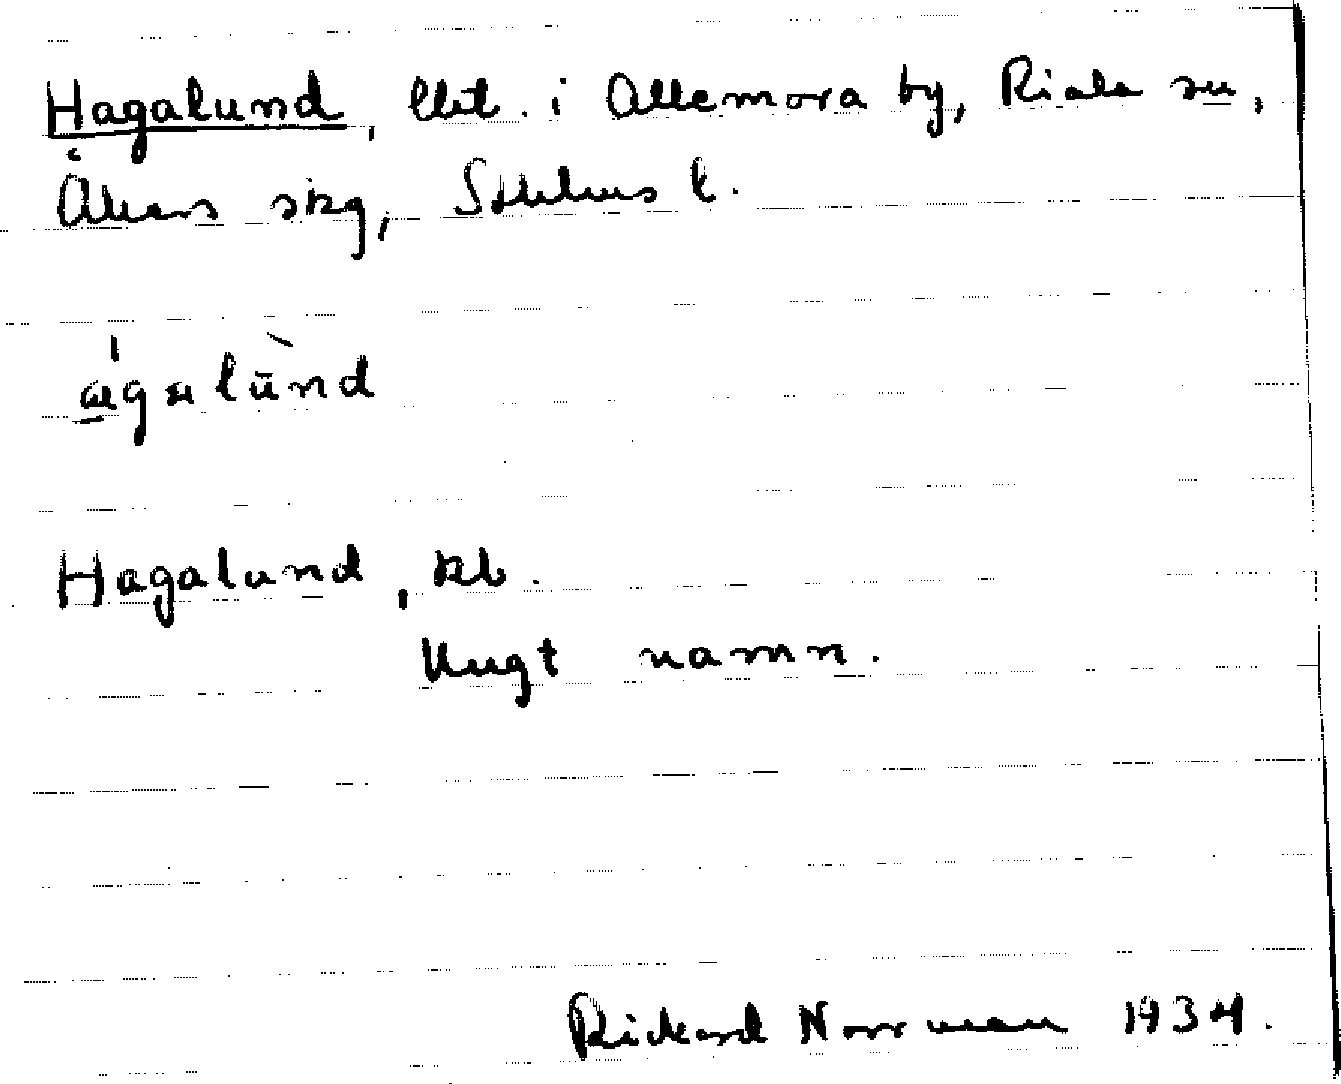 Hagalund, lht. i Allemora by, Riala sn,
Åkers skg, Sthlms l.
Hagalund, kb.
Ungt namn.
Rickard Norrman 1934.